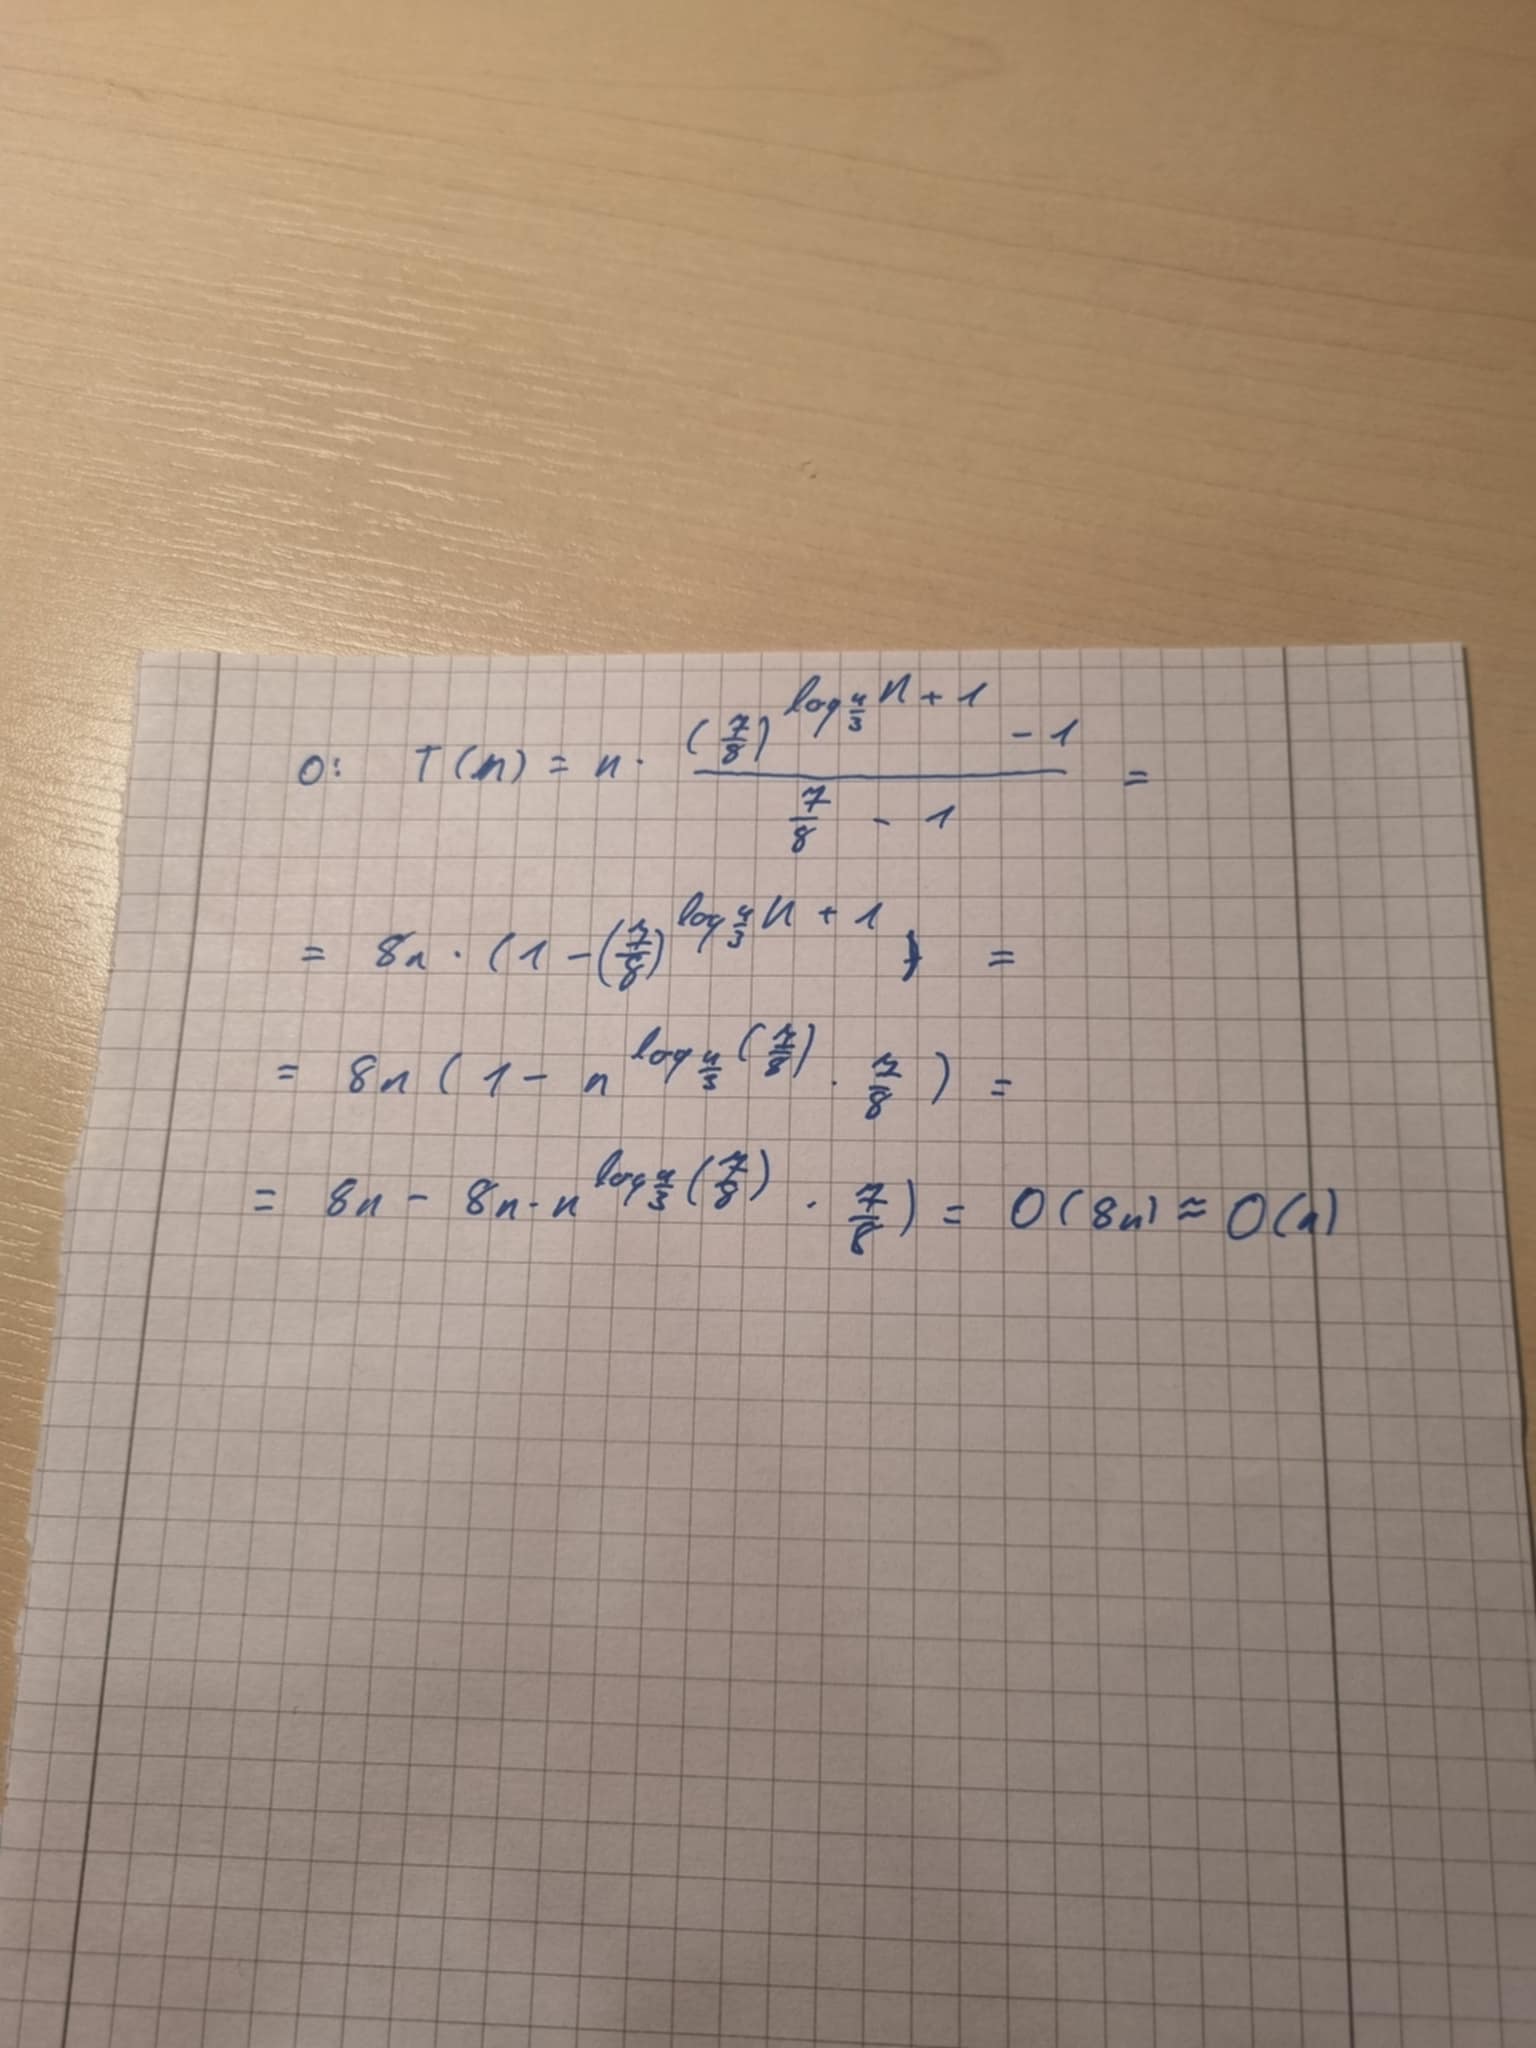 O: T(n) = n · ((7/8)^(log_{4/3} n + 1) - 1) / (7/8 - 1) =
= 8n · (1 - (7/8)^(log_{4/3} n + 1)) =
= 8n (1 - n^(log_{4/3} (7/8)) · 7/8) =
= 8n - 8n · n^(log_{4/3} (7/8)) · 7/8) = O(8n) ≈ O(n)